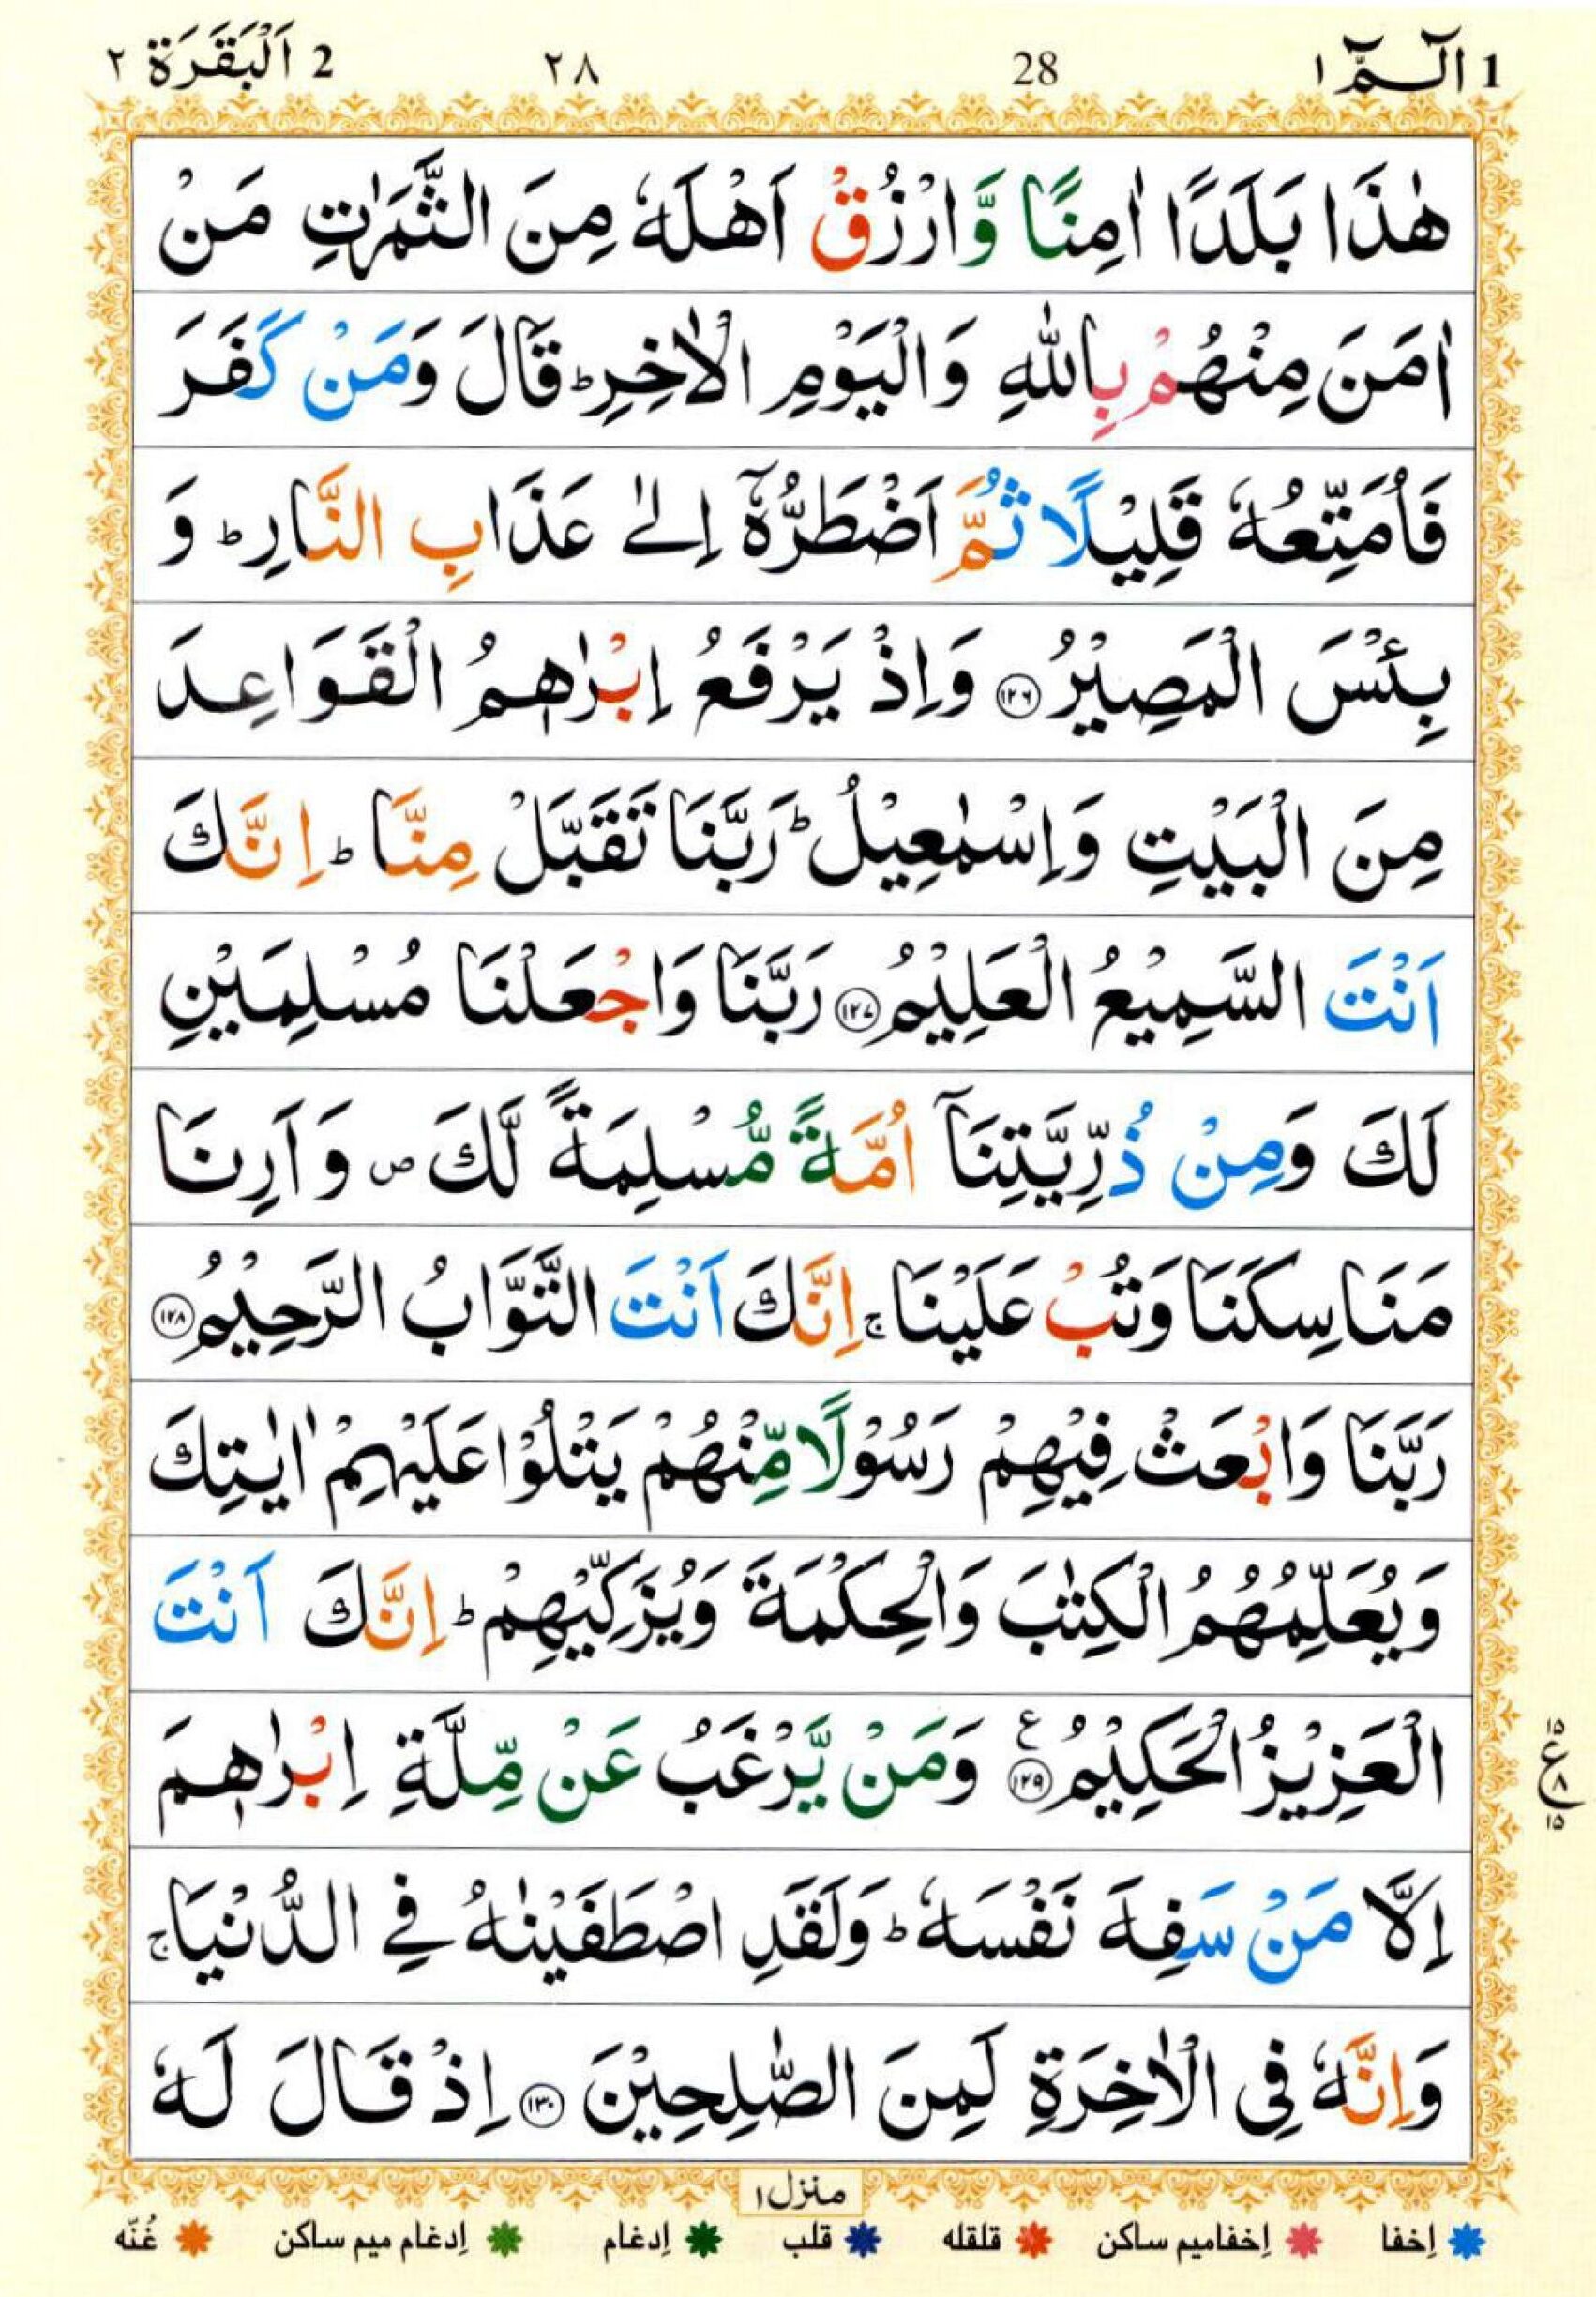 1 الٓمّٓ ١ 28 ٢٨ 2 اَلْبَقَرَة ٢
هٰذَا بَلَدًا اٰمِنًا وَّارْزُقْ اَهْلَهٗ مِنَ الثَّمَرٰتِ مَنْ
اٰمَنَ مِنْهُمْ بِاللّٰهِ وَالْيَوْمِ الْاٰخِرِ ؕ قَالَ وَمَنْ كَفَرَ
فَاُمَتِّعُهٗ قَلِيْلًا ثُمَّ اَضْطَرُّهٗۤ اِلٰى عَذَابِ النَّارِ ؕ وَ
بِئْسَ الْمَصِيْرُ ۝١٢٦ وَاِذْ يَرْفَعُ اِبْرٰهٖمُ الْقَوَاعِدَ
مِنَ الْبَيْتِ وَاِسْمٰعِيْلُ ؕ رَبَّنَا تَقَبَّلْ مِنَّا ؕ اِنَّكَ
اَنْتَ السَّمِيْعُ الْعَلِيْمُ ۝١٢٧ رَبَّنَا وَاجْعَلْنَا مُسْلِمَيْنِ
لَكَ وَمِنْ ذُرِّيَّتِنَاۤ اُمَّةً مُّسْلِمَةً لَّكَ ۪ وَاَرِنَا
مَنَاسِكَنَا وَتُبْ عَلَيْنَا ۚ اِنَّكَ اَنْتَ التَّوَّابُ الرَّحِيْمُ ۝١٢٨
رَبَّنَا وَابْعَثْ فِيْهِمْ رَسُوْلًا مِّنْهُمْ يَتْلُوْا عَلَيْهِمْ اٰيٰتِكَ
وَيُعَلِّمُهُمُ الْكِتٰبَ وَالْحِكْمَةَ وَيُزَكِّيْهِمْ ؕ اِنَّكَ اَنْتَ
الْعَزِيْزُ الْحَكِيْمُ ۝١٢٩ ع وَمَنْ يَّرْغَبُ عَنْ مِّلَّةِ اِبْرٰهٖمَ
١٥ ع ٨ ١٥
اِلَّا مَنْ سَفِهَ نَفْسَهٗ ؕ وَلَقَدِ اصْطَفَيْنٰهُ فِى الدُّنْيَا ۚ
وَاِنَّهٗ فِى الْاٰخِرَةِ لَمِنَ الصّٰلِحِيْنَ ۝١٣٠ اِذْ قَالَ لَهٗ
منزل ١
إخفا إخفا ميم ساكن قلقله قلب إدغام إدغام ميم ساكن غُنّه